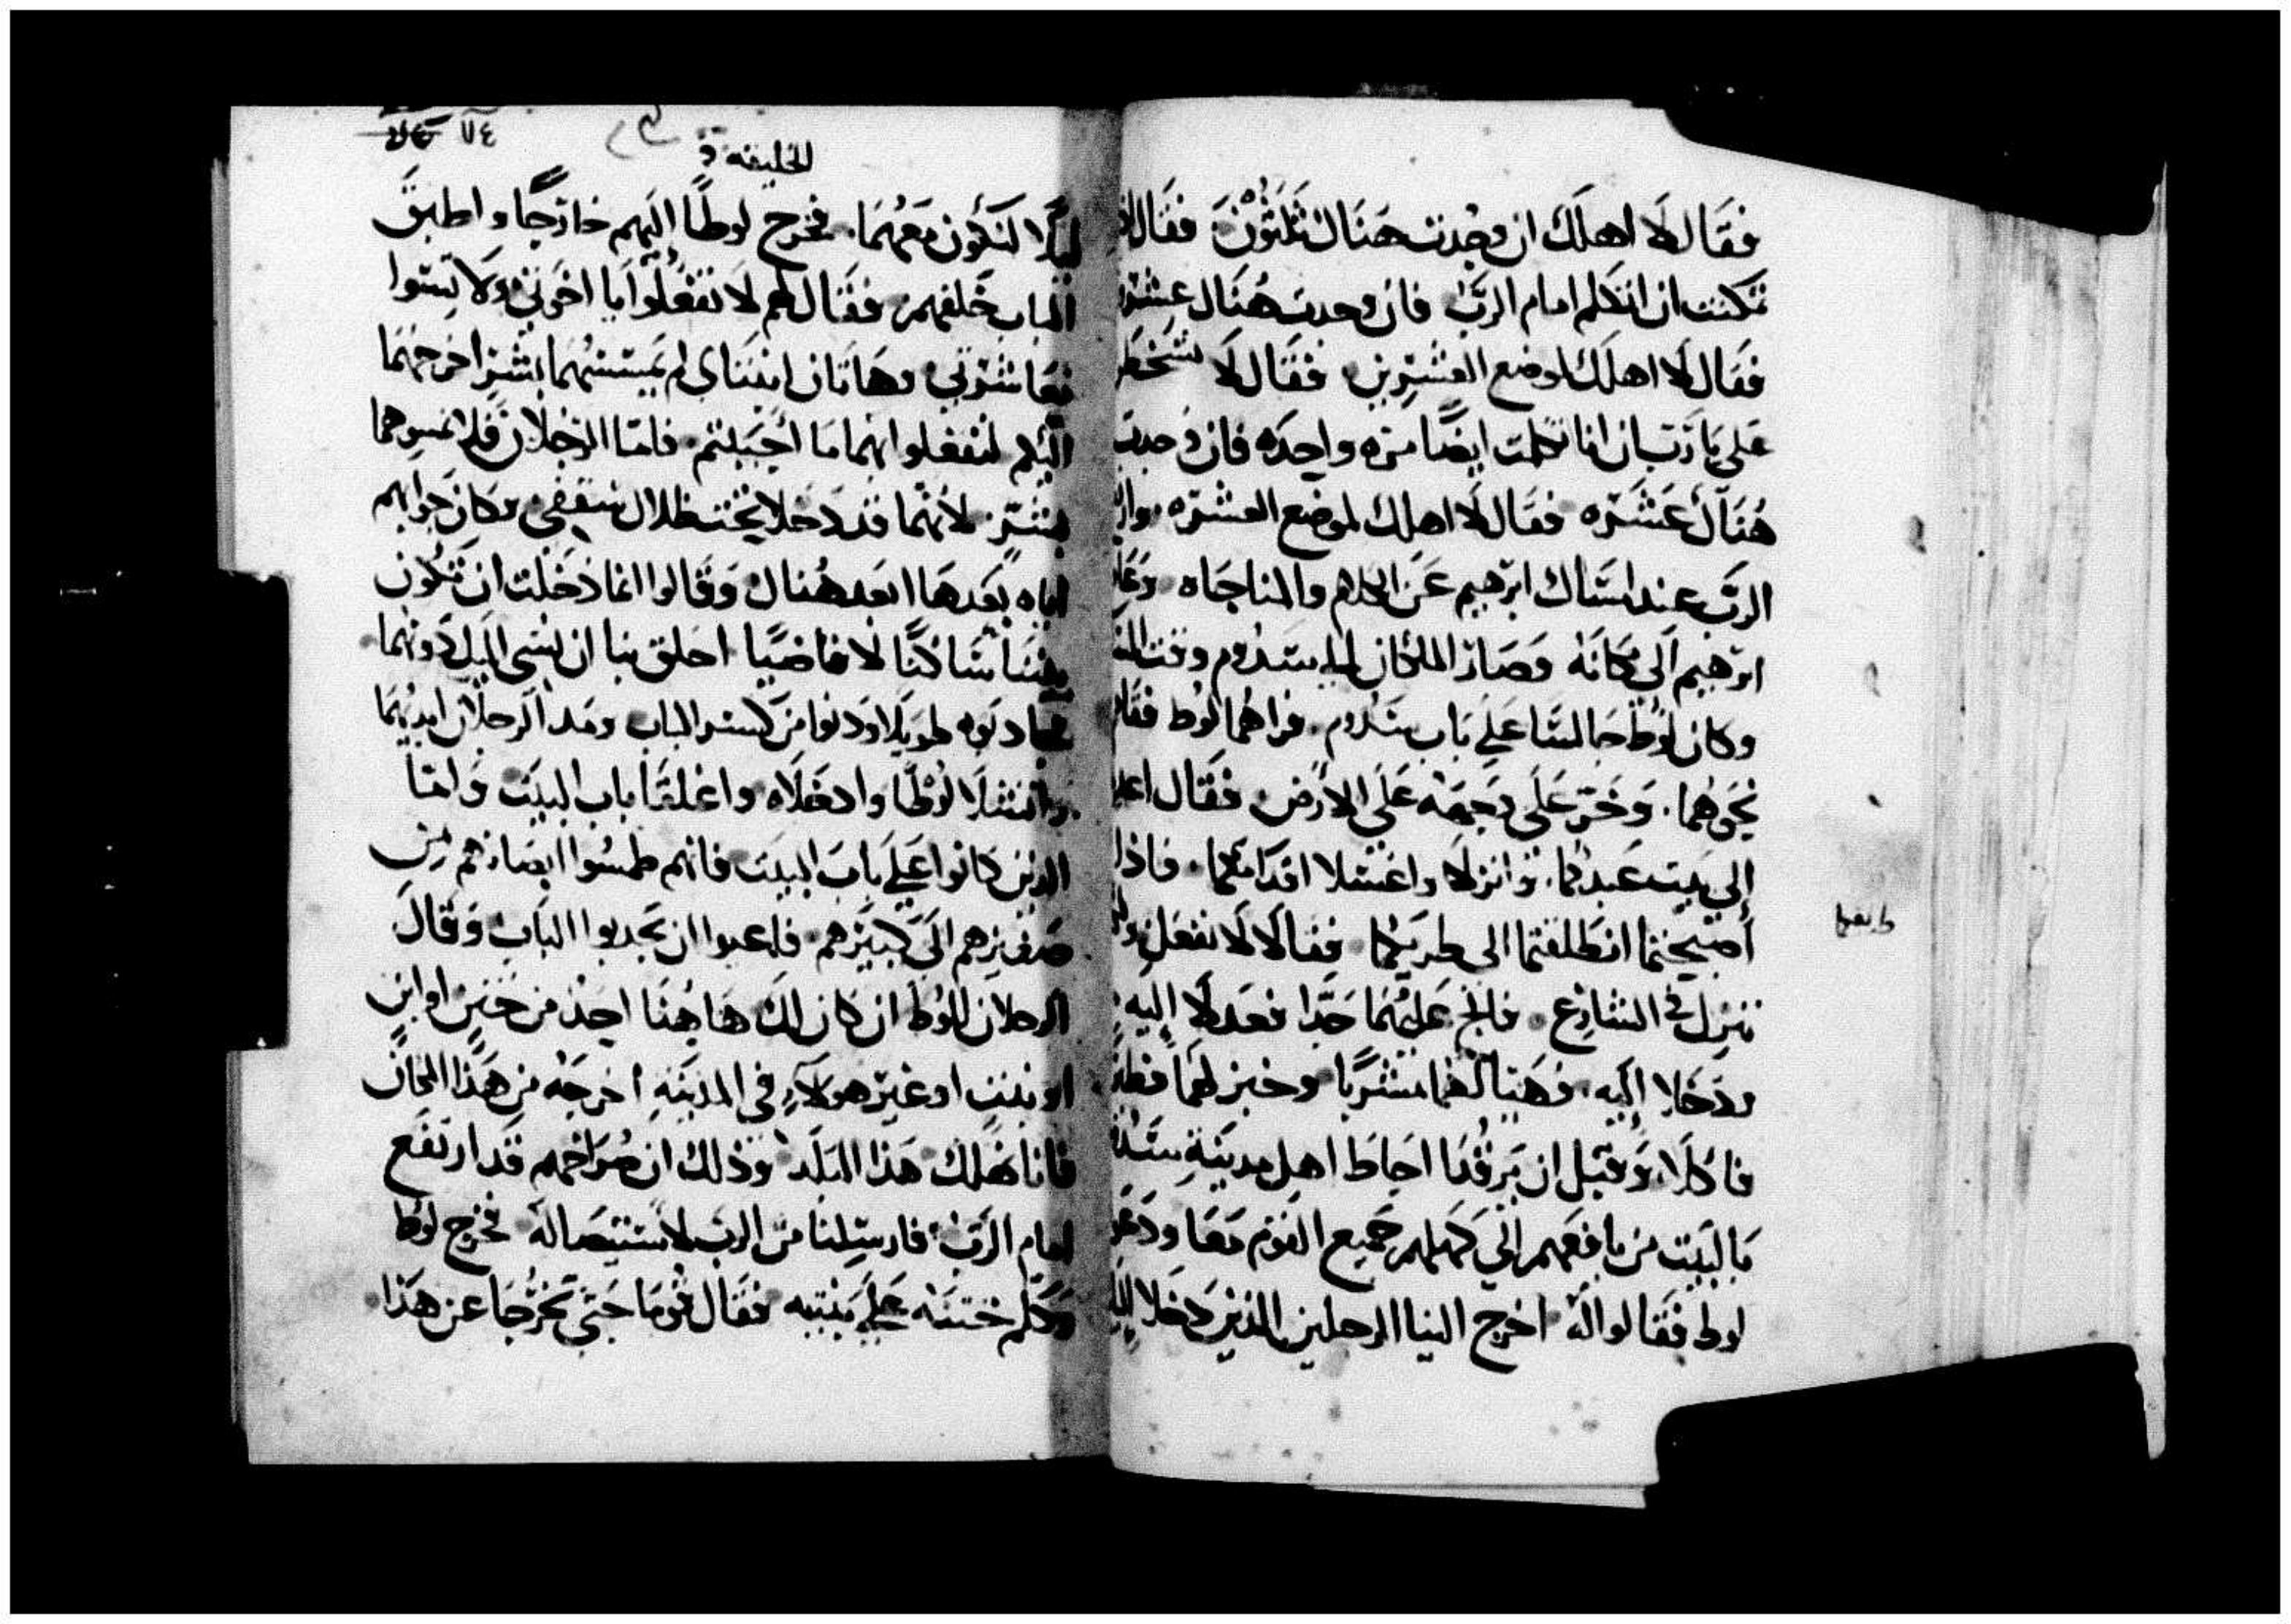 فقال لا اهلك ان وجدت هناك ثلثون فقال
تمكنت ان اتكلم امام الرب فان وجدت هناك عشرون
فقال لا اهلك لموضع العشرين فقال لا تسخط
علي يا رب ان انا تكلمت ايضًا مره واحده فان وجدت
هناك عشره فقال لا اهلك لموضع العشره
الرب عند امساك ابرهيم عن الكلام والمناجاه وعاد
ابرهيم الى مكانه وصار الملكان الى سدوم وقت
وكان لوط جالسا على باب سدوم فراهما لوط فقام
نحوهما وخر على وجهه على الارض فقال
الى بيت عبدكما وانزلا واغسلا اقدامكما فاذا
أصبحتما انطلقتما الى طريقكما فقالا لا نفعل
طريقكما
ننزل في الشارع فالح عليهما جدا فعدلا إليه
ودخلا إليه فهيا لهما مشربا وخبز لهما فطيرا
فاكلا وقبل ان يرقدا احاط اهل مدينة سدوم
بالبيت من يافعهم الى كهلهم جميع القوم معا ودعوا
لوط فقالوا له اخرج الينا الرحلين الذين دخلا
الخليقه
٧٤
ليلا لنكون معهما فخرج لوطًا اليهم خارجًا واطبق
الباب خلفهم فقال لهم لا تفعلوا يا اخوتي ولا تسوا
معاشرتي وهاتان ابنتاي لم يمسسهما بشر اخرجهما
اليكم لتفعلوا بهما ما أحببتم فاما الرجلان فلا تمسوهما
بشر لانهما قد دخلا تحت ظلال سقفي وكان جوابهم
اياه بعدها ابعد هناك وقالوا انما دخلت ان تكون
هنا ساكنًا لا قاضيًا احلق بنا ان نسي اليك دونهما
طويلا ودنوا من كسر الباب ومد الرجلان ايديهما
وانتشلا لوطًا وادخلاه واغلقا باب البيت واما
الذين كانوا على باب البيت فانهم طمسوا ابصارهم من
صغيرهم الى كبيرهم فلعبوا ان يجدوا الباب وقال
الرجلان للوط ان كان لك هاهنا احد من ختن او ابن
او بنت او غير هولاء في المدينة اخرجه من هذا المكان
فانا نهلك هذا البلد وذلك ان صراخهم قد ارتفع
امام الرب فارسلنا من الرب لاستيصاله فخرج لوط
وكلم ختنه على بنتيه فقال قوما حتى تخرجا عن هذا